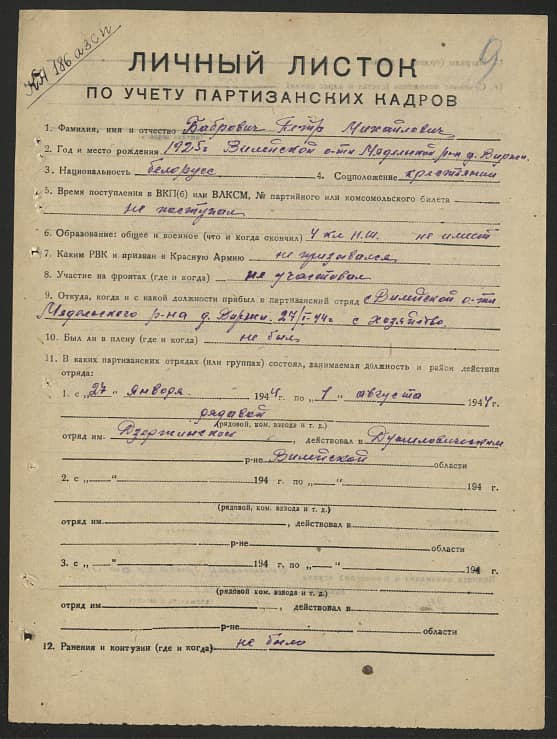 186 азсп
9.
ЛИЧНЫЙ ЛИСТОК
ПО УЧЕТУ ПАРТИЗАНСКИХ КАДРОВ
1. Фамилия, имя и отчество Бабрович Петр Михайлович
2. Год и место рождения 1925г Вилейской о-ти Мядельский р-н д.
3. Национальность белорусс 4. Соцположение крестянин
5. Время поступления в ВКП(б) или ВЛКСМ, № партийного или комсомольского билета
не поступал
6. Образование: общее и военное (что и когда окончил) 4 кл Н.Ш. не имеет
7. Каким РВК и призван в Красную Армию не призывался
8. Участие на фронтах (где и когда) не участвовал
9. Откуда, когда и с какой должности прибыл в партизанский отряд с Вилейской о-ти
Мядельского р-на д. 27/I-44г с хозяйство
10. Был ли в плену (где и когда) не был
11. В каких партизанских отрядах (или группах) состоял, занимаемая должность и район действия
отряда:
1. с „27" января 1944 г. по „1" августа 1944 г.
рядавой
(рядовой, ком. взвода и т. д.)
отряд им. Дзержинской, действовал в Дуниловическим
р-не Вилейской области
2. с „—" 194 г. по „—" 194 г.
(рядовой, ком. взвода и т. д.)
отряд им, действовал в
р-не области
3. с „—" 194 г. по „—" 194 г.
(рядовой, ком. взвода и т. д.)
отряд им, действовал в
р-не области
12. Ранения и контузии (где и когда) не было